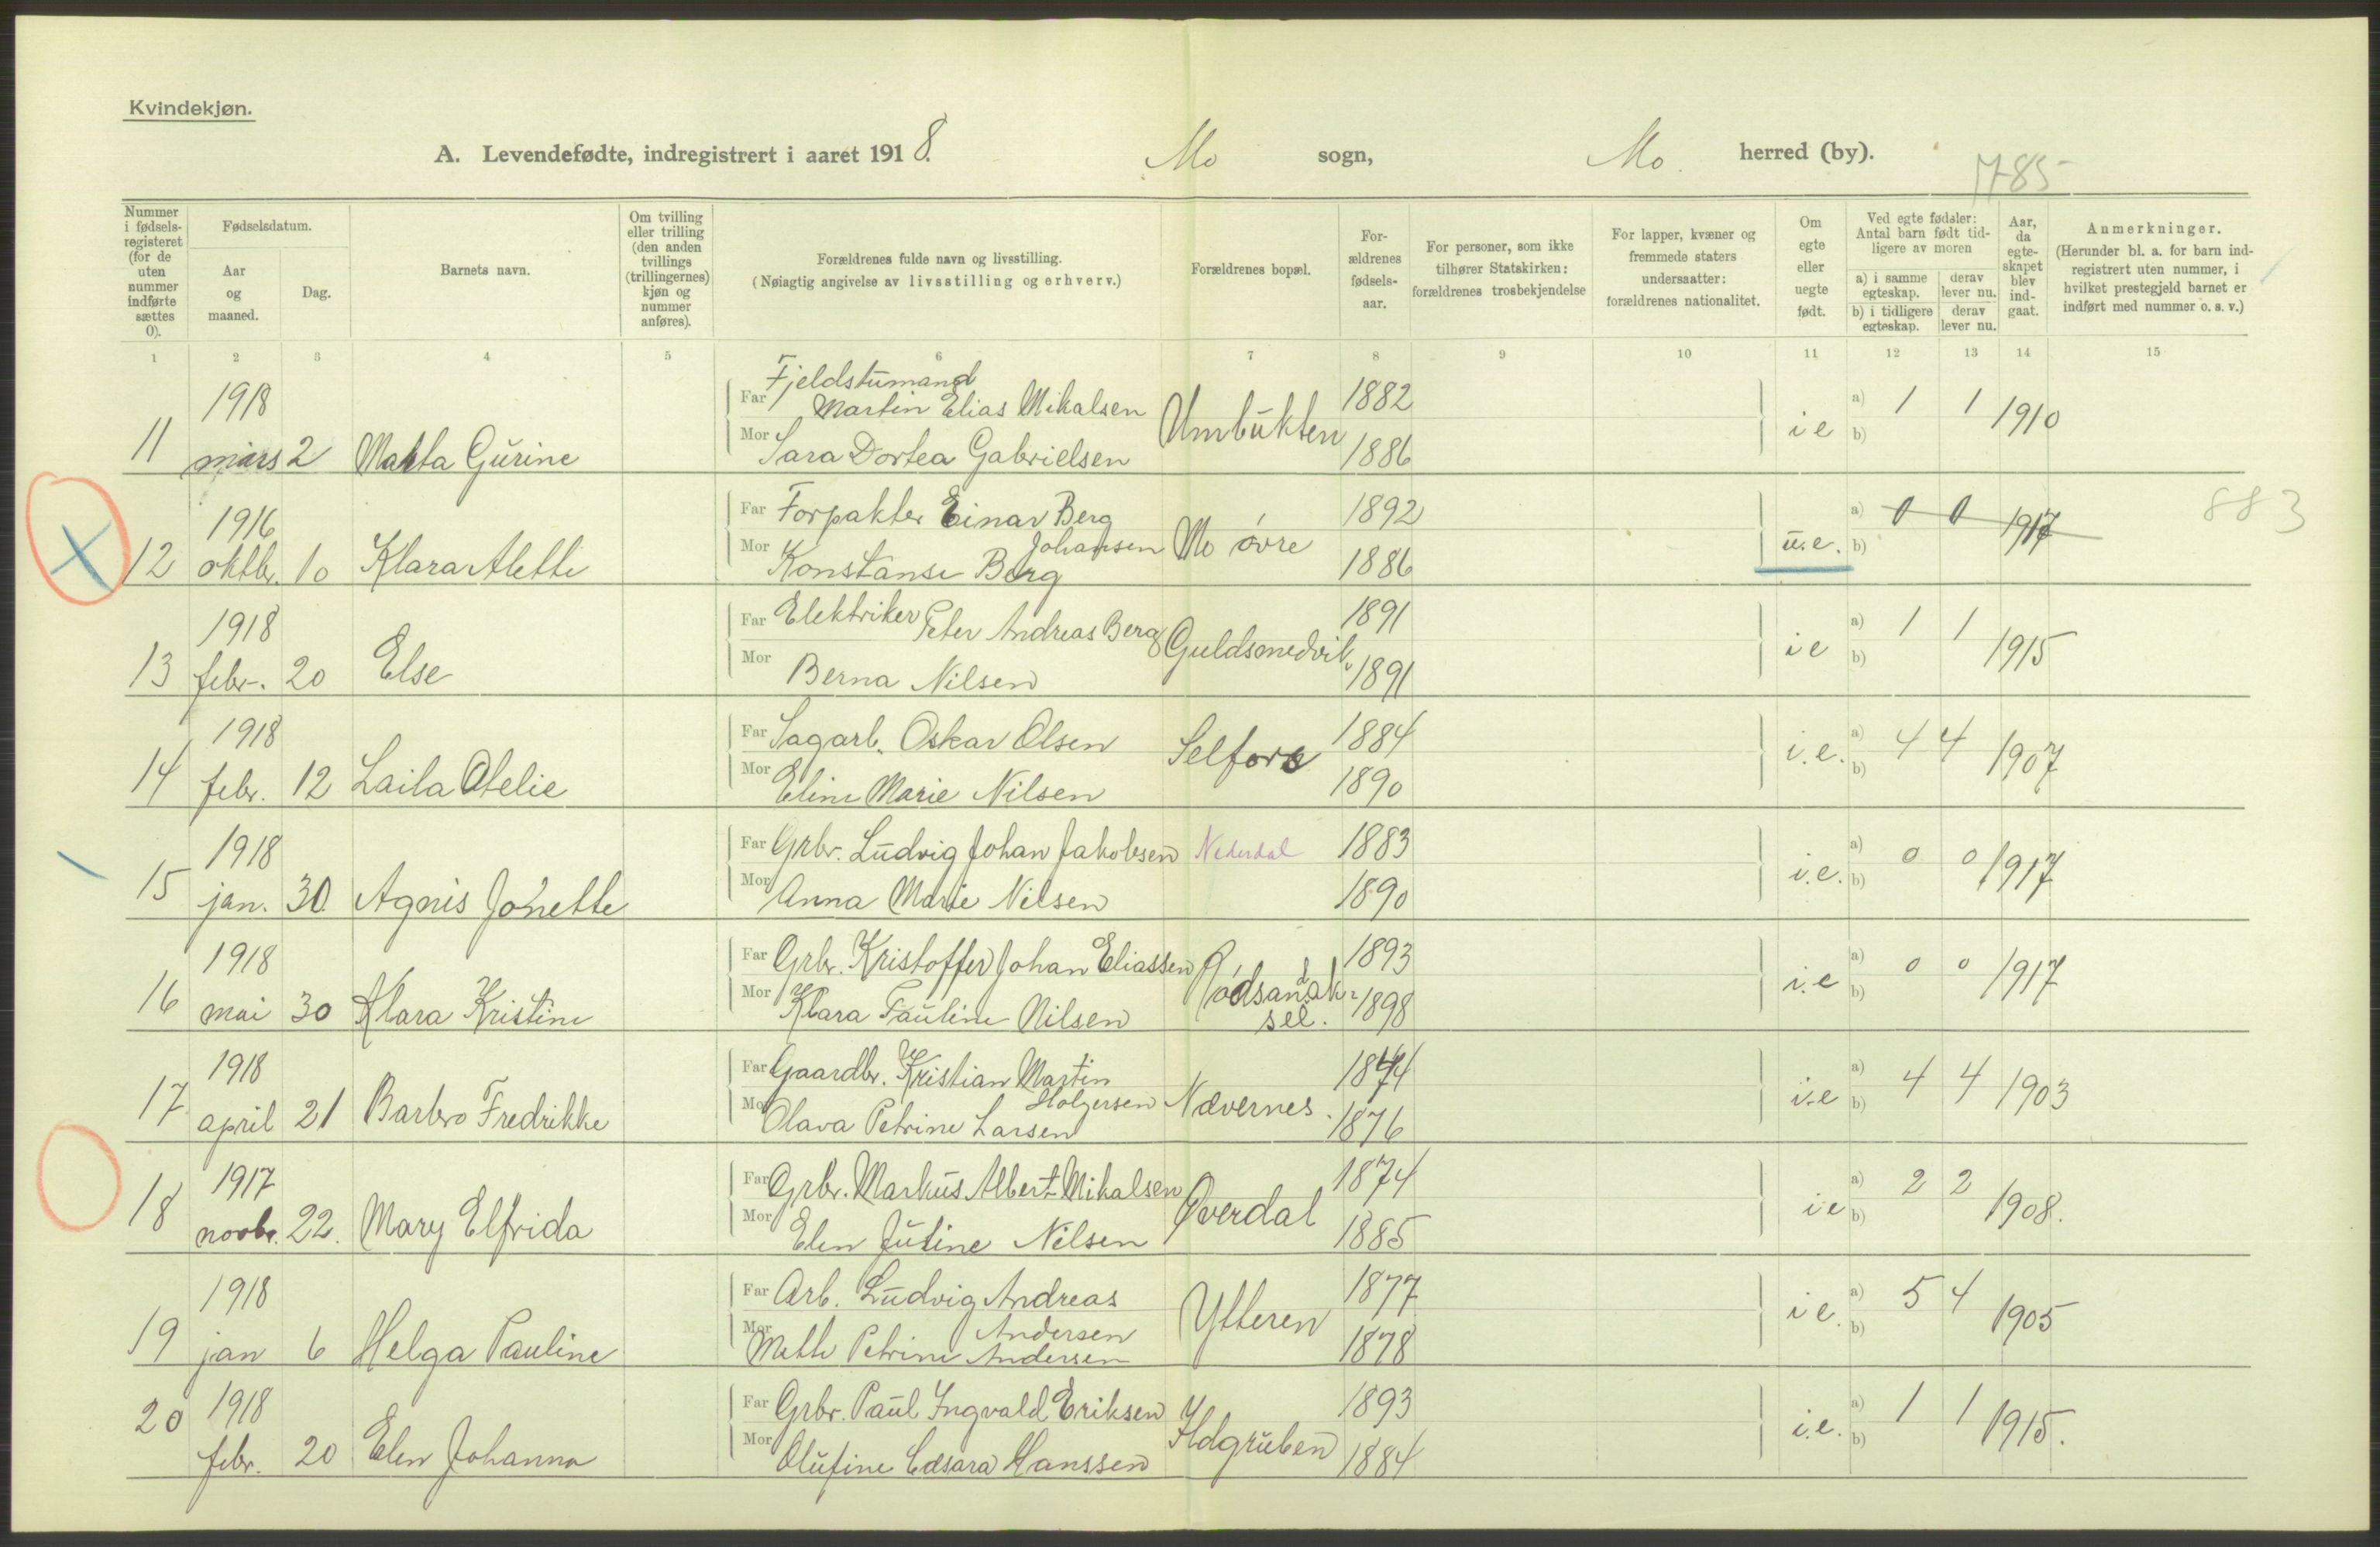 Kvindekjøn.
A. Levendefødte, indregistrert i aaret 1918. Mo sogn, Mo herred (by).
1785
Nummer i fødselsregisteret (for de uten nummer indførte sættes 0).
Fødselsdatum.
Aar og maaned.
Dag.
Barnets navn.
Om tvilling eller trilling (den anden tvillings (trillingernes) kjøn og nummer anføres).
Forældrenes fulde navn og livsstilling.
(Nøiagtig angivelse av livsstilling og erhverv.)
Forældrenes bopæl.
Forældrenes fødselsaar.
For personer, som ikke tilhører Statskirken: forældrenes trosbekjendelse
For lapper, kvæner og fremmede staters undersaatter: forældrenes nationalitet.
Om egte eller uegte født.
Ved egte fødsler: Antal barn født tidligere av moren
a) i samme egteskap. derav lever nu.
b) i tidligere egteskap. derav lever nu.
Aar, da egteskapet blev indgaat.
Anmerkninger.
(Herunder bl. a. for barn indregistrert uten nummer, i hvilket prestegjeld barnet er indført med nummer o. s. v.)
1 2 3 4 5 6 7 8 9 10 11 12 13 14 15
1918 Far Fjeldstumand Martin Elias Mikalsen 1882 a) 1 1
11 mars 2 Marta Gurine Mor Sara Dortea Gabrielsen Umbukten 1886 i e b) 1910
1916 Far Forpakter Einar Berg 1892 a) 0 0 883
Johansen
12 oktbr. 10 Klara Alette Mor Konstanse Berg Mo øvre 1886 u.e. b) 1917
1918 Far Elektriker Peter Andreas Berg 1891 a) 1 1
13 febr. 20 Else Mor Berna Nilsen Guldsmedvik 1891 i e b) 1915
1918 Far Sagarb. Oskar Olsen 1884 a) 4 4
14 febr. 12 Laila Otelie Mor Eline Marie Nilsen Selfors 1890 i.e. b) 1907
1918 Far Grbr. Ludvig Johan Jakobsen Nederdal 1883 a) 0 0
15 jan. 30 Agnis Jonette Mor Anna Marie Nilsen 1890 i.e. b) 1917
1918 Far Grbr. Kristoffer Johan Eliassen 1893 a) 0 0
16 mai 30 Klara Kristine Mor Klara Pauline Nilsen 1898 i.e b) 1917
1918 Far Gaardbr. Kristian Martin Holgersen 1874 a) 4 4
17 april 21 Barbro Fredrikke Mor Olava Petrine Larsen Nævernes. 1876 i.e b) 1903
1917 Far Grbr. Markus Albert Mikalsen 1874 a) 2 2
18 novbr. 22. Mary Elfrida Mor Elen Justine Nilsen Øverdal 1885 i e b) 1908.
1918 Far Arb. Ludvig Andreas Andersen 1877 a) 5 4
19 jan 6 Helga Pauline Mor Mette Petrine Andersen Ytteren 1878 i e. b) 1905
1918 Far Grbr. Paul Ingvald Eriksen 1893 a) 1 1
20 febr. 20 Elen Johanna Mor Olufine Hanssen Ildgruben 1884 i.e. b) 1915.